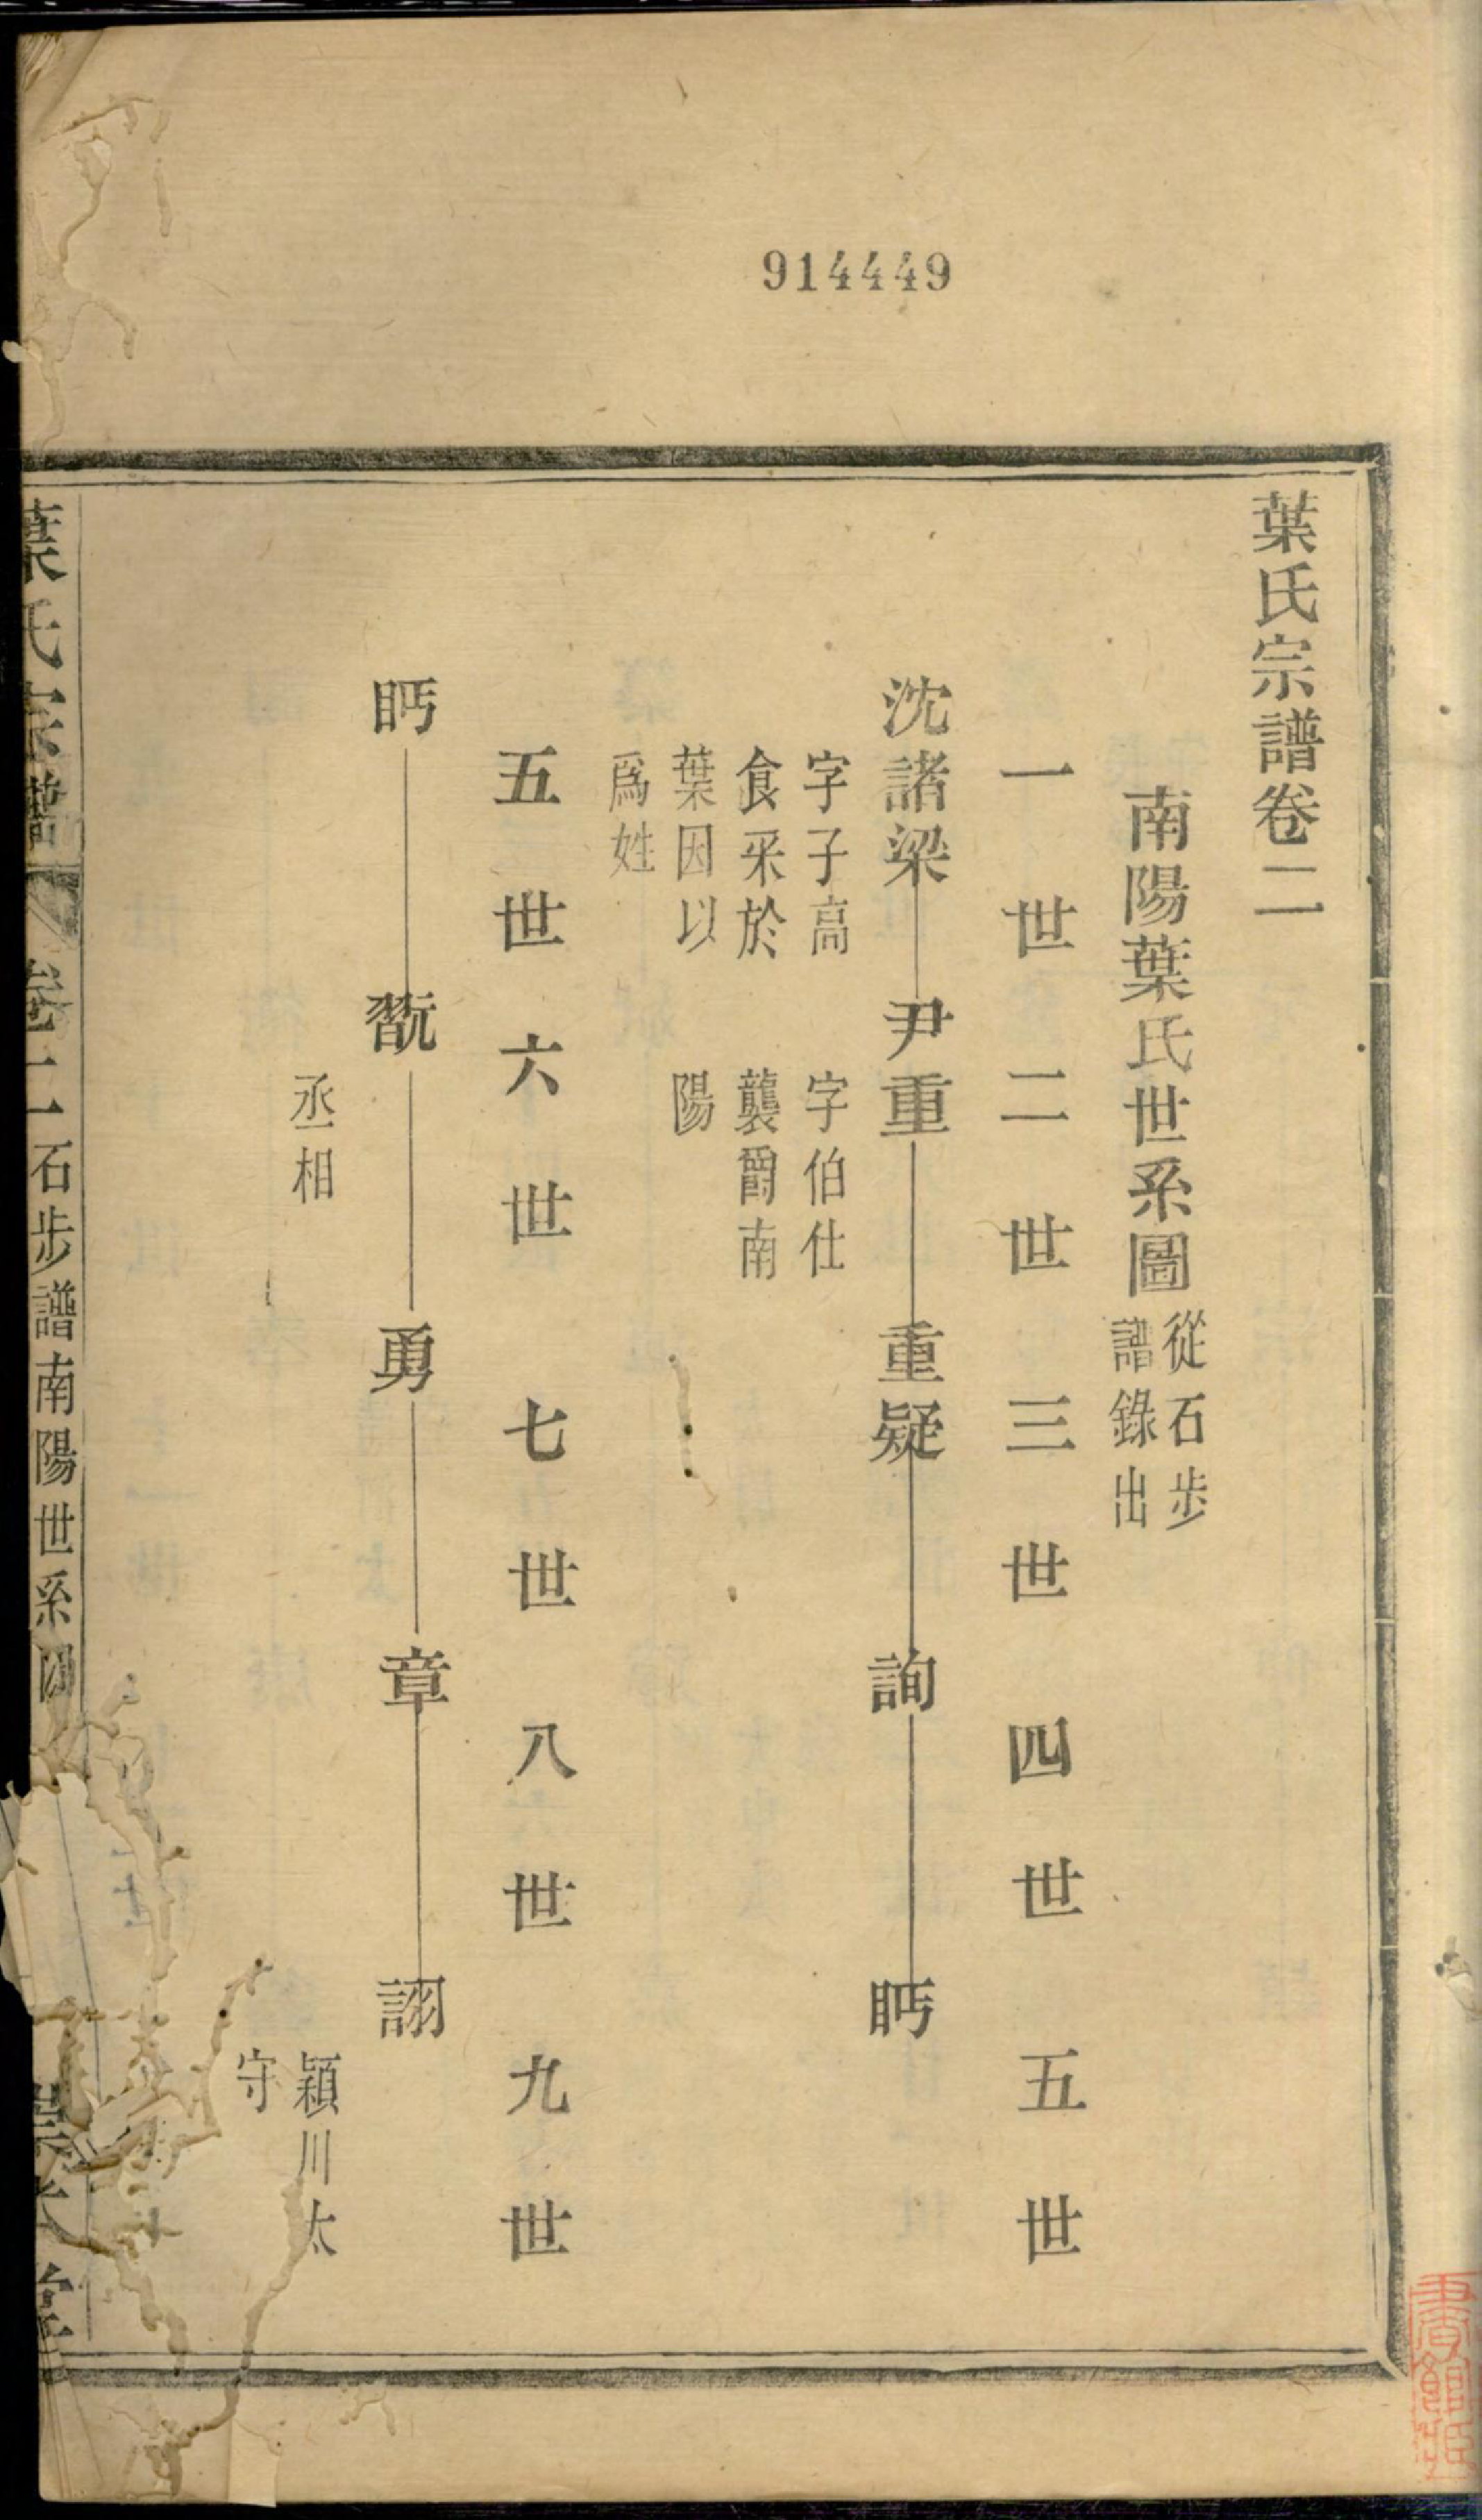 914449
葉氏宗譜卷二
南陽葉氏世系圖
從石步
譜錄出
一世 二世 三世 四世 五世
沈諸梁 尹重 重疑 詢 眄
字子高 字伯仕
食采於 襲爵南
葉因以 陽
爲姓
五世 六世 七世 八世 九世
眄 翫 勇 章 詡
丞相 穎川太
守
葉氏宗譜 卷二 石步譜南陽世系圖